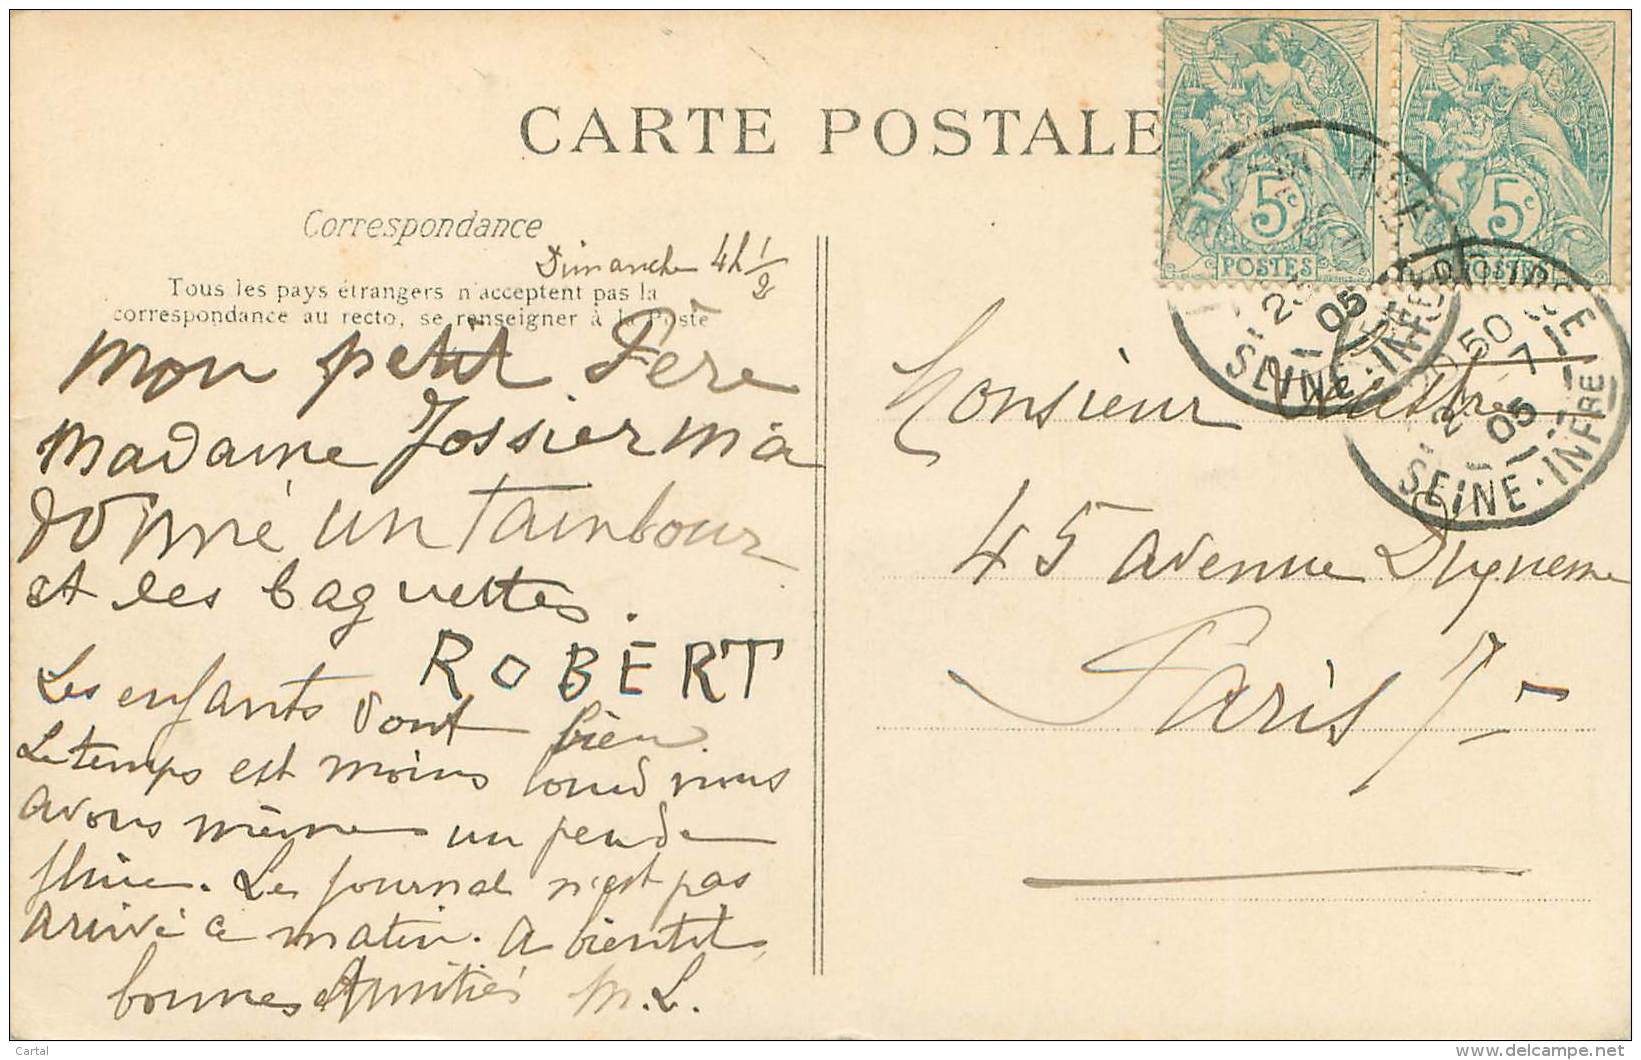 CARTE POSTALE
Correspondance
Dimanche 4h 1/2
Tous les pays étrangers n'acceptent pas la
correspondance au recto, se renseigner à la Poste
mon petit Père
madame Jossier m'a
donné un tambour
et les baguettes.
ROBERT
Les enfants vont bien.
Le temps est moins lourd nous
avons même un peu de
pluie. Le journal n'est pas
arrivé ce matin. A bientôt
bonnes Amitiés M.L.
5c
POSTES
5c
POSTES
05
SEINE-INFRE
50
7
05
SEINE-INFRE
Monsieur
45 avenue Duquesne
Paris 7
Cartal
delcampe.net